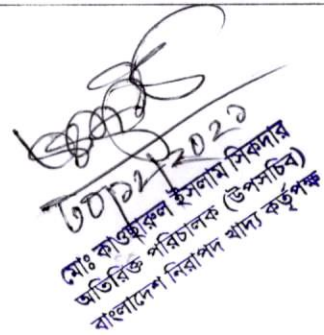 ৩০/১২/২০২১
মোঃ কাওছারুল ইসলাম সিকদার
অতিরিক্ত পরিচালক (উপসচিব)
বাংলাদেশ নিরাপদ খাদ্য কর্তৃপক্ষ